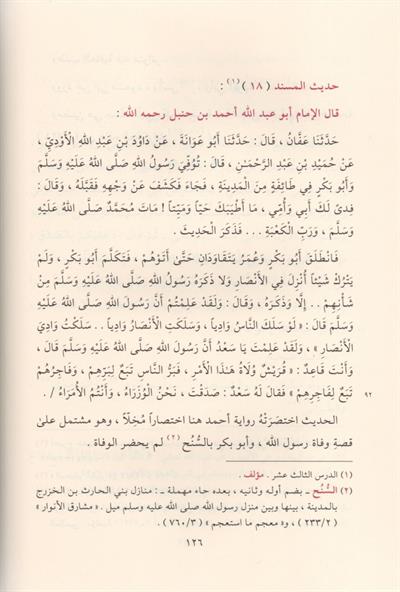 حديث المسند ( ١٨ )(١) :
قال الإمام أبو عبد الله أحمد بن حنبل رحمه الله :
حَدَّثَنَا عَفَّانُ ، قَالَ : حَدَّثَنَا أَبُو عَوَانَةَ ، عَنْ دَاوُدَ بْنِ عَبْدِ اللهِ الْأَوْدِيِّ ،
عَنْ حُمَيْدِ بْنِ عَبْدِ الرَّحْمَـٰنِ ، قَالَ : تُوُفِّيَ رَسُولُ اللهِ صَلَّى اللهُ عَلَيْهِ وَسَلَّمَ
وَأَبُو بَكْرٍ فِي طَائِفَةٍ مِنَ الْمَدِينَةِ ، فَجَاءَ فَكَشَفَ عَنْ وَجْهِهِ فَقَبَّلَهُ ، وَقَالَ :
فِدىً لَكَ أَبِي وَأُمِّي ، مَا أَطْيَبَكَ حَيّاً وَمَيِّتاً ! مَاتَ مُحَمَّدٌ صَلَّى اللهُ عَلَيْهِ
وَسَلَّمَ ، وَرَبِّ الْكَعْبَةِ ... فَذَكَرَ الْحَدِيثَ .
فَانْطَلَقَ أَبُو بَكْرٍ وَعُمَرُ يَتَقَاوَدَانِ حَتَّىٰ أَتَوْهُمْ ، فَتَكَلَّمَ أَبُو بَكْرٍ ، وَلَمْ
يَتْرُكْ شَيْئاً أُنْزِلَ فِي الْأَنْصَارِ وَلَا ذَكَرَهُ رَسُولُ اللهِ صَلَّى اللهُ عَلَيْهِ وَسَلَّمَ مِنْ
شَأْنِهِمْ .. إِلَّا وَذَكَرَهُ ، وَقَالَ : وَلَقَدْ عَلِمْتُمْ أَنَّ رَسُولَ اللهِ صَلَّى اللهُ عَلَيْهِ
وَسَلَّمَ قَالَ : « لَوْ سَلَكَ النَّاسُ وَادِياً ، وَسَلَكَتِ الْأَنْصَارُ وَادِياً .. سَلَكْتُ وَادِيَ
الْأَنْصَارِ » ، وَلَقَدْ عَلِمْتَ يَا سَعْدُ أَنَّ رَسُولَ اللهِ صَلَّى اللهُ عَلَيْهِ وَسَلَّمَ قَالَ ،
وَأَنْتَ قَاعِدٌ : « قُرَيْشٌ وُلَاةُ هَذَا الْأَمْرِ ، فَبَرُّ النَّاسِ تَبَعٌ لِبَرِّهِمْ ، وَفَاجِرُهُمْ
تَبَعٌ لِفَاجِرِهِمْ » فَقَالَ لَهُ سَعْدٌ : صَدَقْتَ ، نَحْنُ الْوُزَرَاءُ ، وَأَنْتُمُ الْأُمَرَاءُ / . ٩٢
والحديث اختصَرَتْهُ رواية أحمد هنا اختصاراً مُخِلّاً ، وهو مشتمل على
قصةِ وفاة رسول الله ، وأبو بكر بالسُّنُحِ(٢) لم يحضر الوفاة .
(١) الدرس الثالث عشر . مؤلف .
(٢) السُّنُح - بضم أوله وثانيه ، بعده حاء مهملة - : منازل بني الحارث بن الخزرج
بالمدينة ، بينها وبين منزل رسول الله صلى الله عليه وسلم ميل . « مشارق الأنوار »
( ٢٣٣/٢ ) ، و« معجم ما استعجم » ( ٧٦٠/٣ ) .
١٢٦